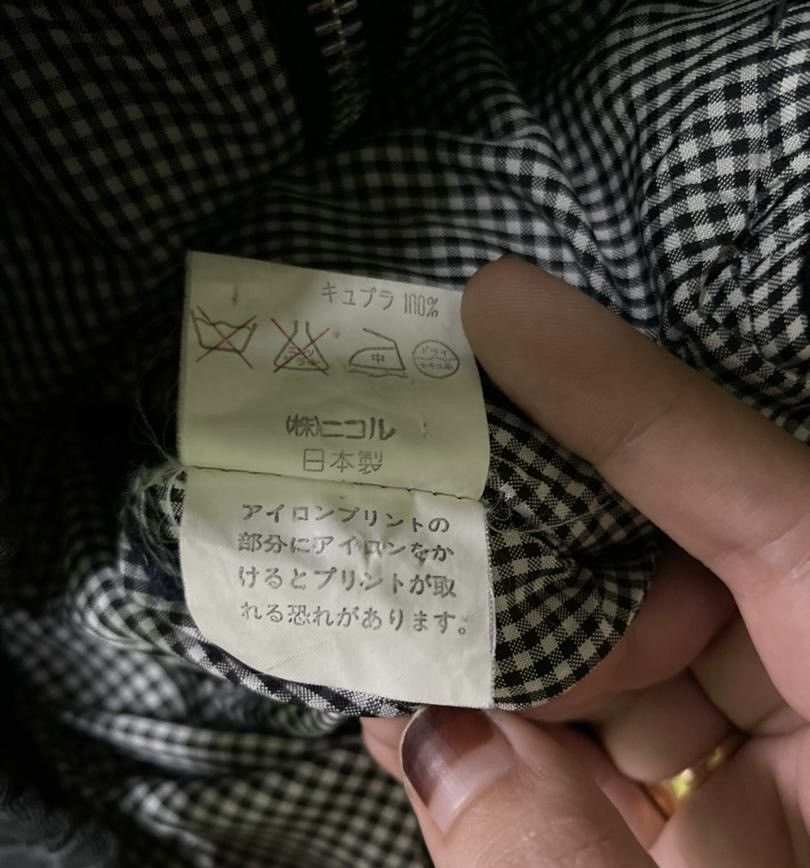 キュプラ 100%
エンソ
サラシ
中
ドライ
セキユ系
(株)ニコル
日本製
アイロンプリントの
部分にアイロンをか
けるとプリントが取
れる恐れがあります。